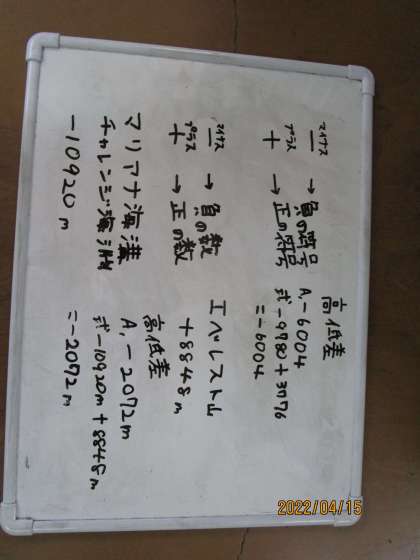 マイナス
－ → 負の符号
プラス
＋ → 正の符号
高低差
A,－6004
式－9780＋3776
＝－6004
マイナス
－ → 負の数
プラス
＋ → 正の数
エベレスト山
＋8848m
マリアナ海溝
チャレンジ海渕
－10920m
高低差
A,－2072m
式－10920m＋8848m
＝－2072m
2022/04/15